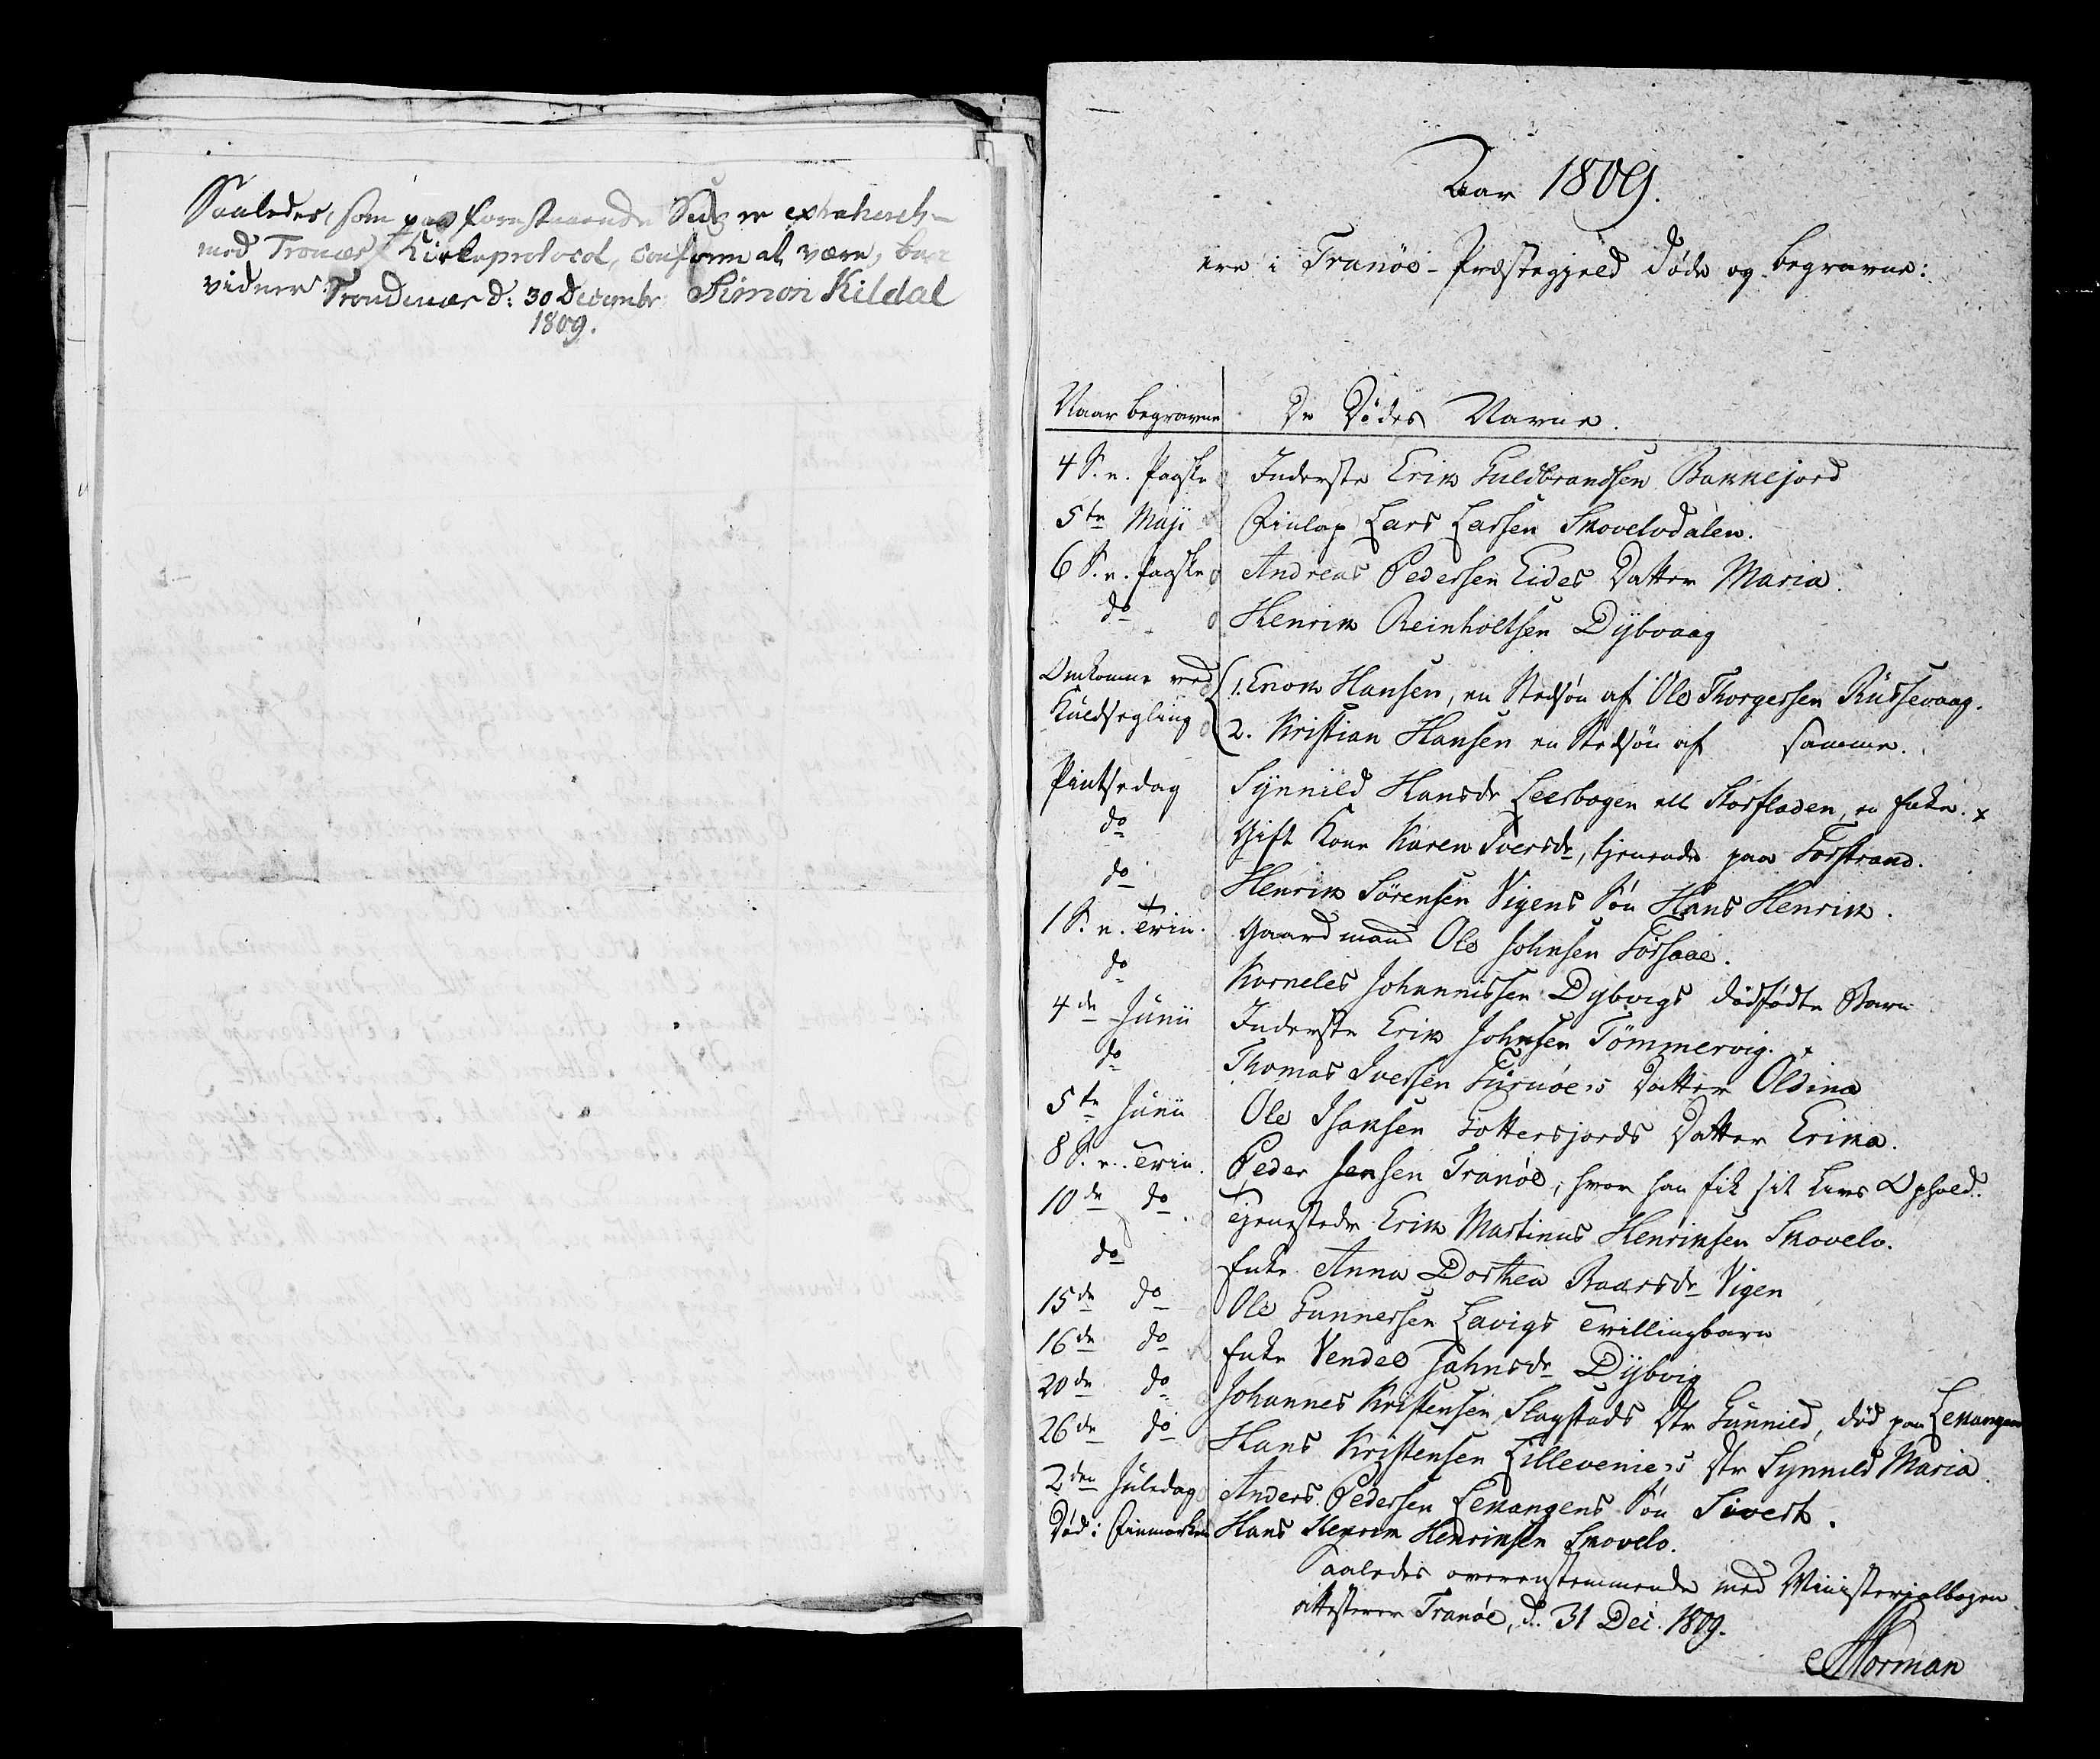 Saaledes, som paa forestaaende Side er extraheret
med Tronæs Kirkeprotocol, conform at være, be
vidner Trondenæs d: 30 Decembr Simon Kildal
1809.
Aar 1809.
ere i Tranöe-Præstegjeld døde og begravne:
Naar begravne De Dødes Navne.
4 S. e. Paaske Inderste Erik Guldbrandsen Bakkejord
5te Maji Finlap Lars Larsen Skovelvdalen.
6 S. e. Paaske Andreas Pedersen Eides Datter Maria.
do Henrik Reinholtsen Dÿbvaag
Omkomne ved 1. Enok Hansen, en Stedsøn af Ole Thorgersen Russevaag.
Kuldsegling 2. Kristian Hansen en Stedsøn af samme.
Pintsedag Synnild Hansdr Leerbogen ell Storfladen, en Enke. x
do Gift Kone Karen Iversdr, tjenende paa Forstrand.
do Henrik Sörensen Vigens Søn Hans Henrik.
1 S. e. Trin. Gaardmand Ole Johnsen
do Korneles Johannissen Dybvigs dödfødte Barn
4de Junii Inderste Erik Johnsen Tömmervig. x
do Thomas Iversen Furuöe's Datter Oldina
5te Junii Ole Isaksen Gottesjords Datter Erika.
8 S. e. Trin. Peder Jensen Tranöe, hvor han fik sit Livs Ophold.
10de do Tjenestedr. Erik Martinus Henriksen Skovelv.
do Enke Anna Dorthea Baarsdr Vigen
15de do Ole Gunnersen Lavigs Tvillingbarn
16de do Enke Vendel Jahnsdr Dÿbvig
20de do Johannes Kristensen Slagstads Dtr Gunnild, død paa Lekangen
26de do Hans Kristensen Lillevenie's Dtr Synnild Maria.
2den Juledag Anders Pedersen Lekangens Søn Sivert.
Død i Finmarken Hans Henrik Henriksen Skovelv.
Saaledes overenstemmende med Ministerialbogen
attesterer Tranöe, d. 31 Dec. 1809.
Norman